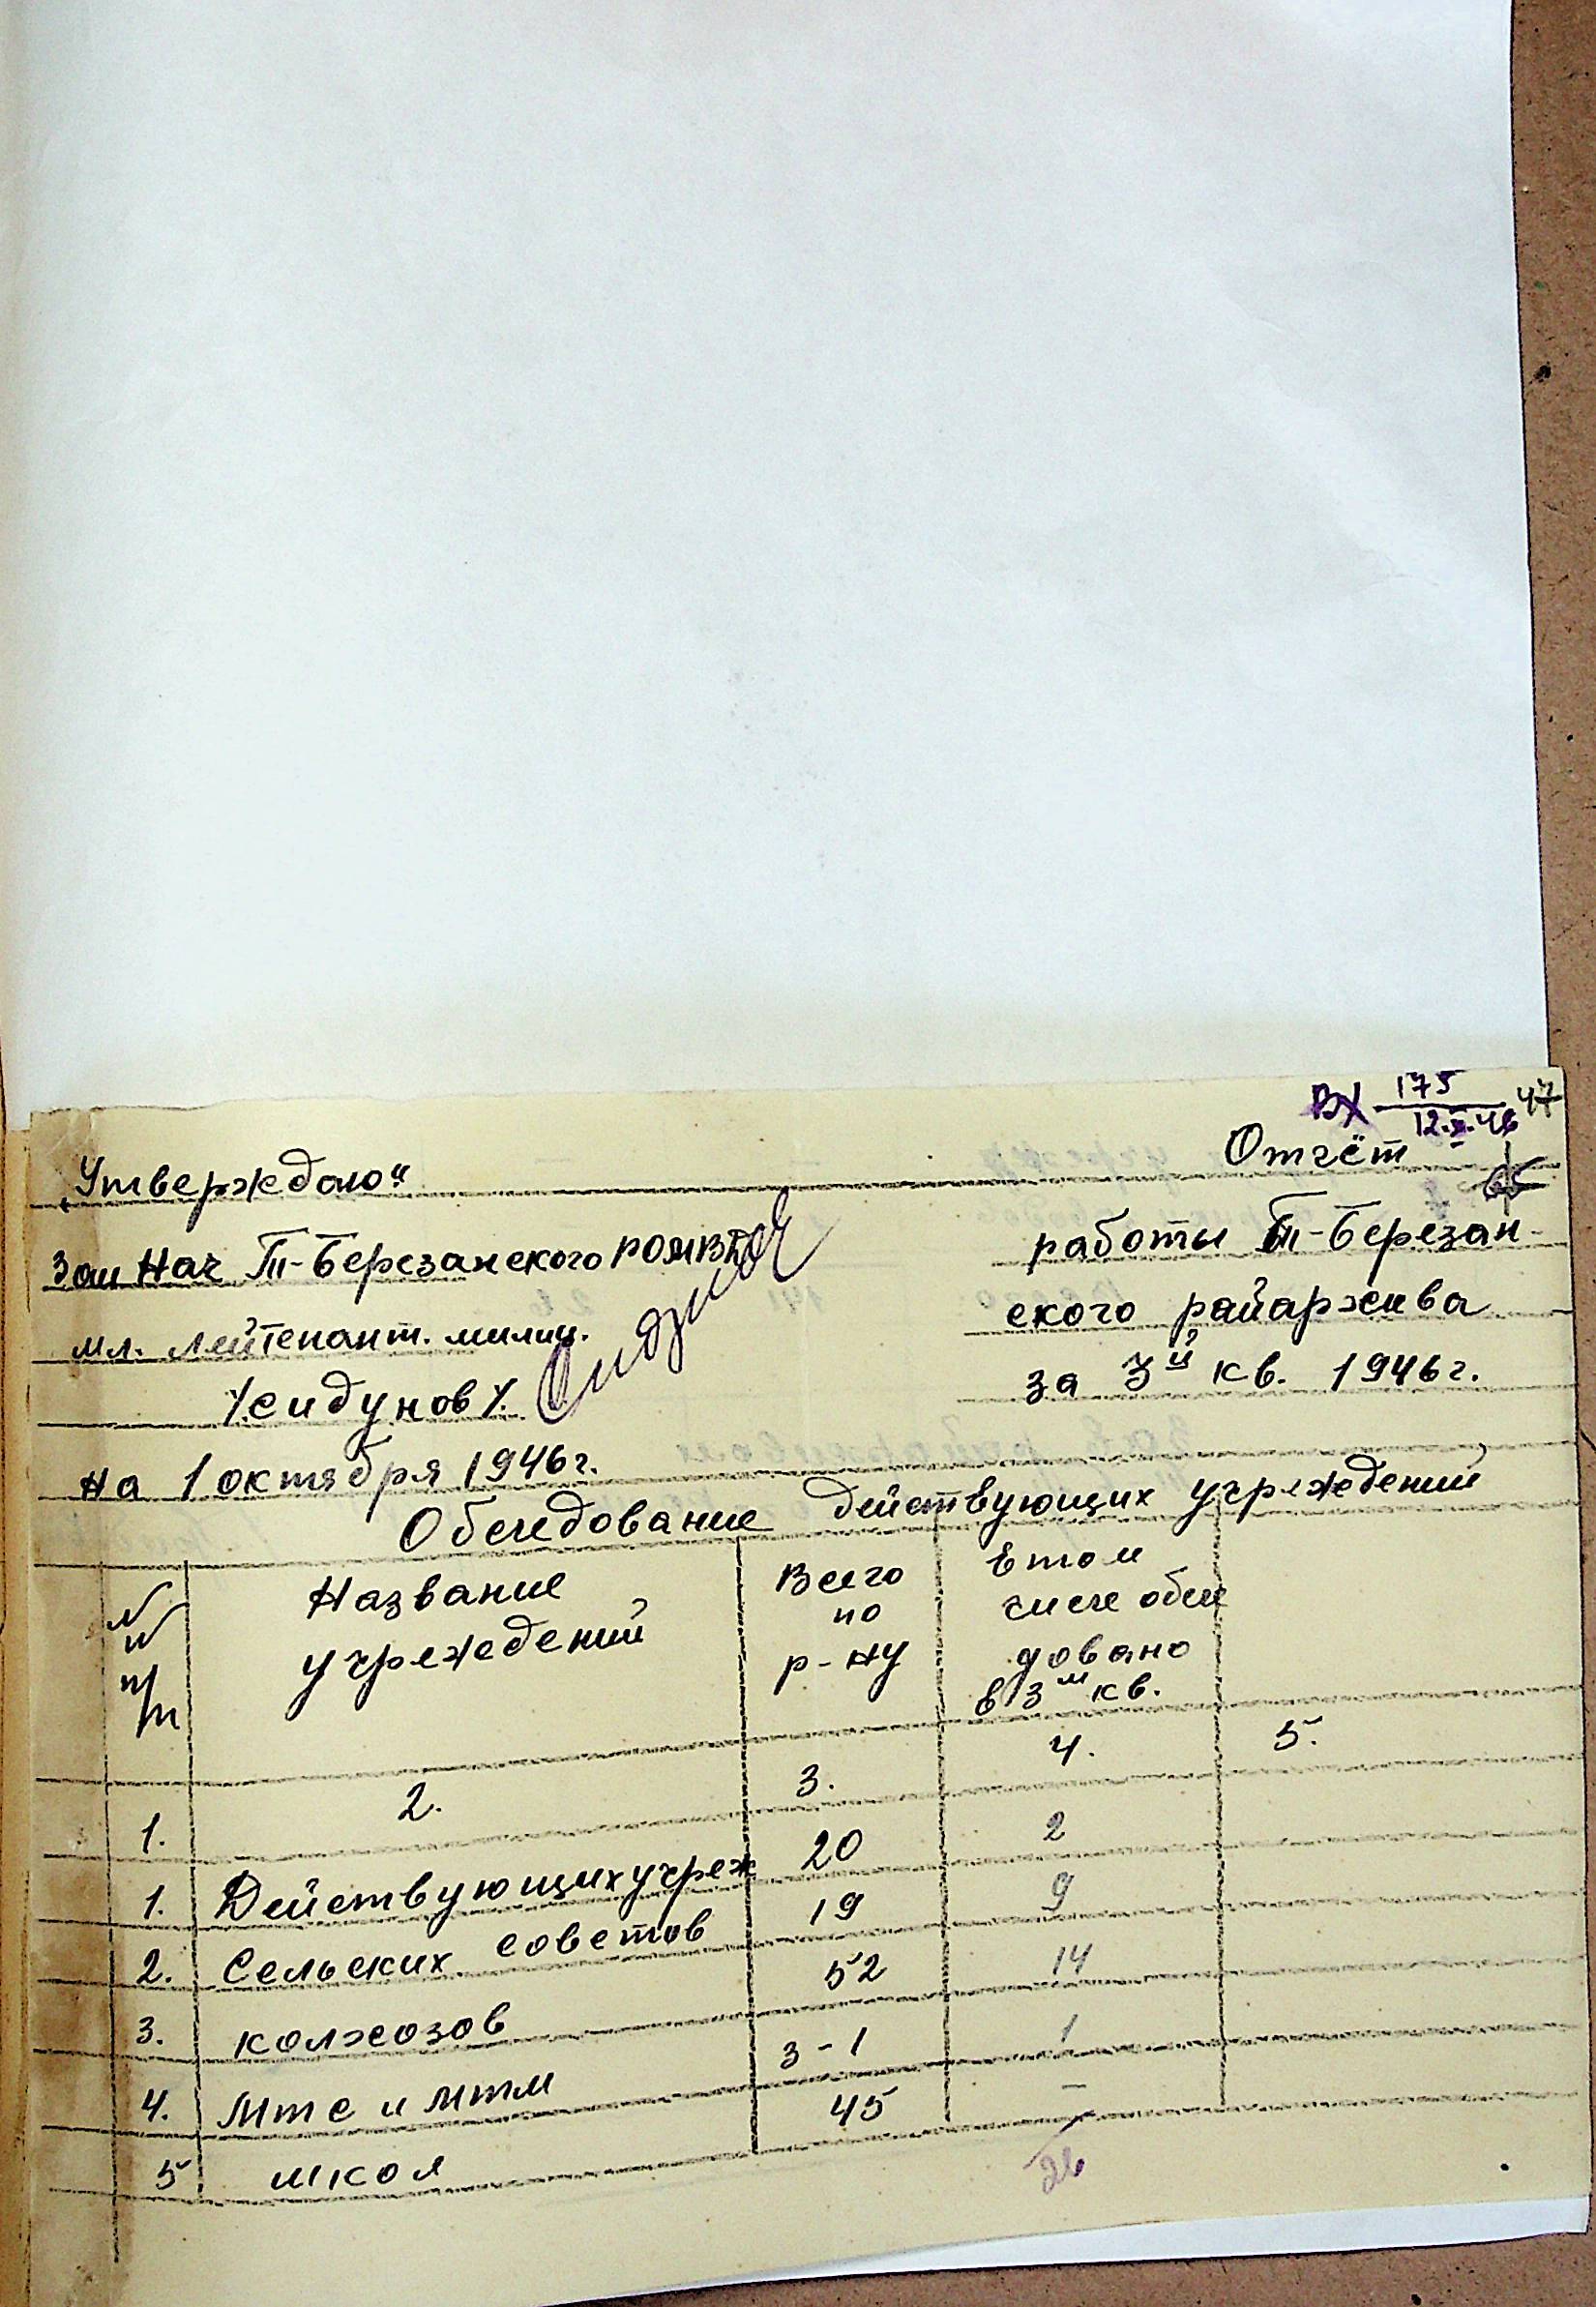 Вх 175 47
12.X.46
65
„Утверждаю“
Зам Нач Т-Березанского РОМВД
мл. лейтенант. милиц.
/Сидунов/.
На 1 октября 1946г.
Отчёт
работы Т-Березан-
ского райархива
за 3й кв. 1946г.
Обследование действующих учреждений
№№ п/п
Название учреждений
Всего по р-ну
В том числе обсле
довано
в 3м кв.
1. 2. 3. 4. 5.
1. Действующих учреж 20 2
2. Сельских советов 19 9
3. колхозов 52 14
4. Мтс и Мтм 3-1 1
5 школ 45 –
26